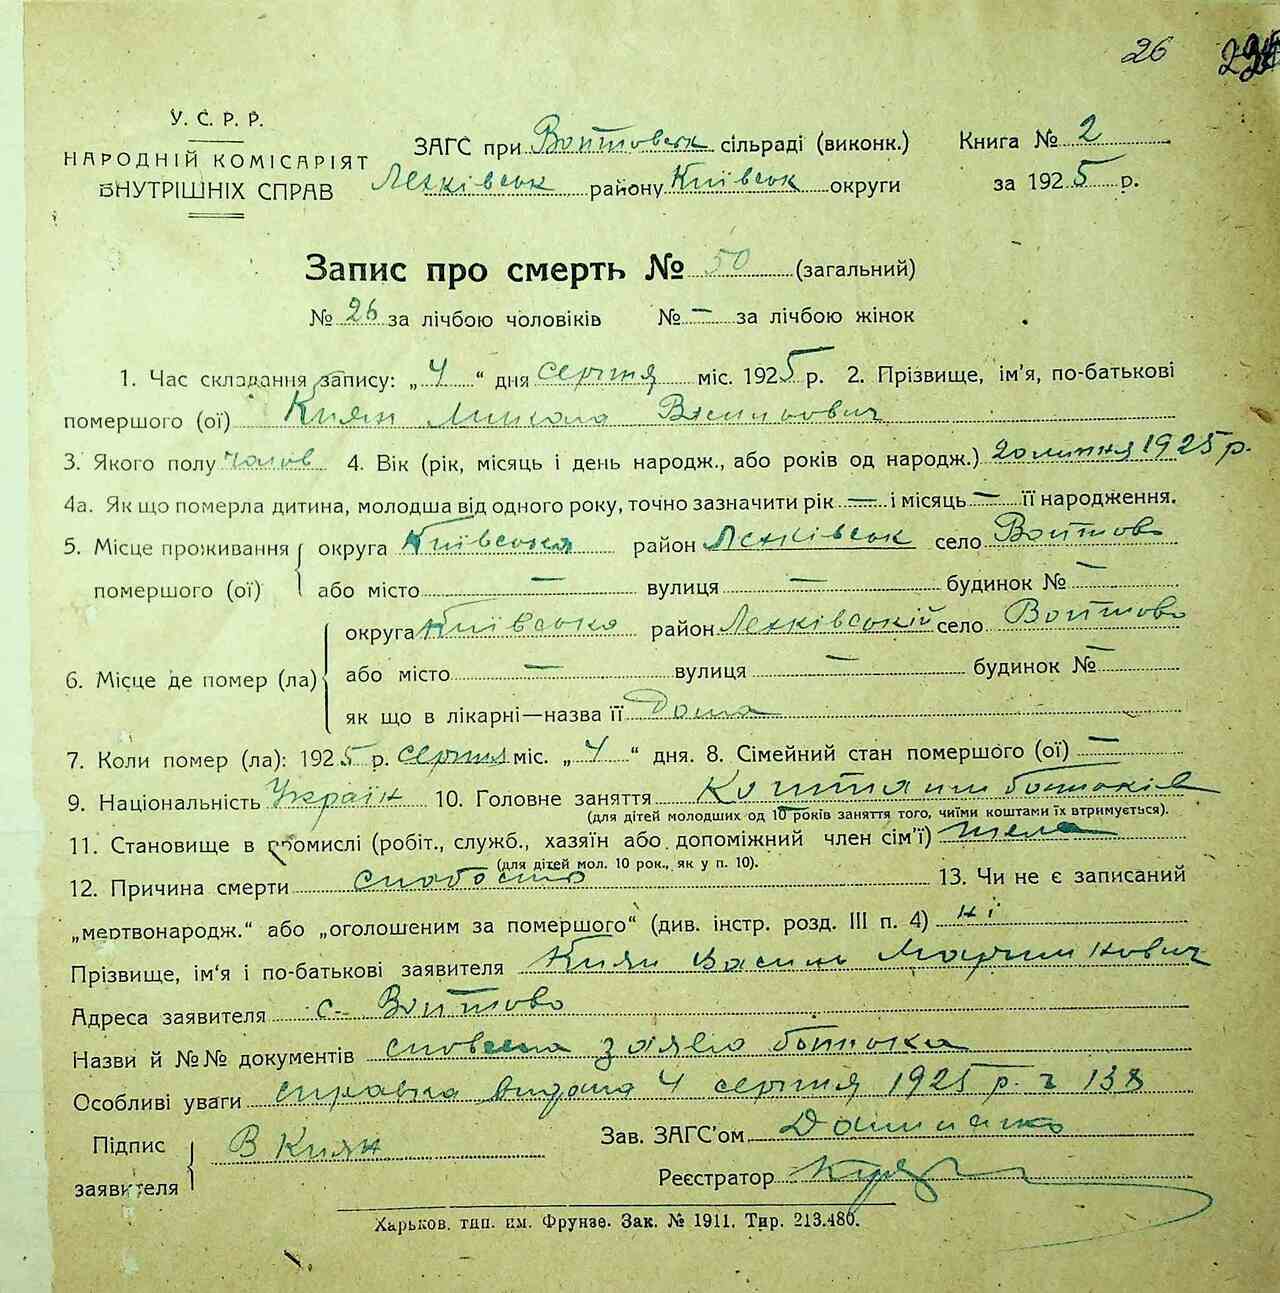 26
У. С. Р. Р.
НАРОДНІЙ КОМІСАРІЯТ
ВНУТРІШНІХ СПРАВ
ЗАГС при Войтовськ сільраді (виконк.)
району Київськ округи
Книга № 2
за 1925 р.
Запис про смерть № 50 (загальний)
№ 26 за лічбою чоловіків № — за лічбою жінок
1. Час складання запису: „4“ дня серпня міс. 1925 р. 2. Прізвище, ім’я, по-батькові
помершого (ої) Киян Микола Васильович
3. Якого полу чолов 4. Вік (рік, місяць і день народж., або років од народж.) 20 липня 1925 р.
4а. Як що померла дитина, молодша від одного року, точно зазначити рік — і місяць — її народження.
5. Місце проживання помершого (ої)
округа Київська район село Войтово
або місто — вулиця — будинок № —
6. Місце де помер (ла)
округа Київська район село Войтово
або місто — вулиця — будинок № —
як що в лікарні—назва її Дома
7. Коли помер (ла): 1925 р. серпня міс. „4“ дня. 8. Сімейний стан помершого (ої) —
9. Національність Україн 10. Головне заняття Коштами батьків
(для дітей молодших од 10 років заняття того, чиїми коштами їх втримується).
11. Становище в промислі (робіт., служб., хазяїн або допоміжний член сім’ї)
(для дітей мол. 10 рок., як у п. 10).
12. Причина смерти слабость 13. Чи не є записаний
„мертвонародж.“ або „оголошеним за помершого“ (див. інстр. розд. III п. 4) ні
Прізвище, ім’я і по-батькові заявителя Киян Василь
Адреса заявителя с. Войтово
Назви й №№ документів словесна заява батька
Особливі уваги справка видана 4 серпня 1925 р. ч 138
Підпис заявителя В Киян
Зав. ЗАГС’ом
Реєстратор
Харьков. тип. им. Фрунзе. Зак. № 1911. Тир. 213.480.